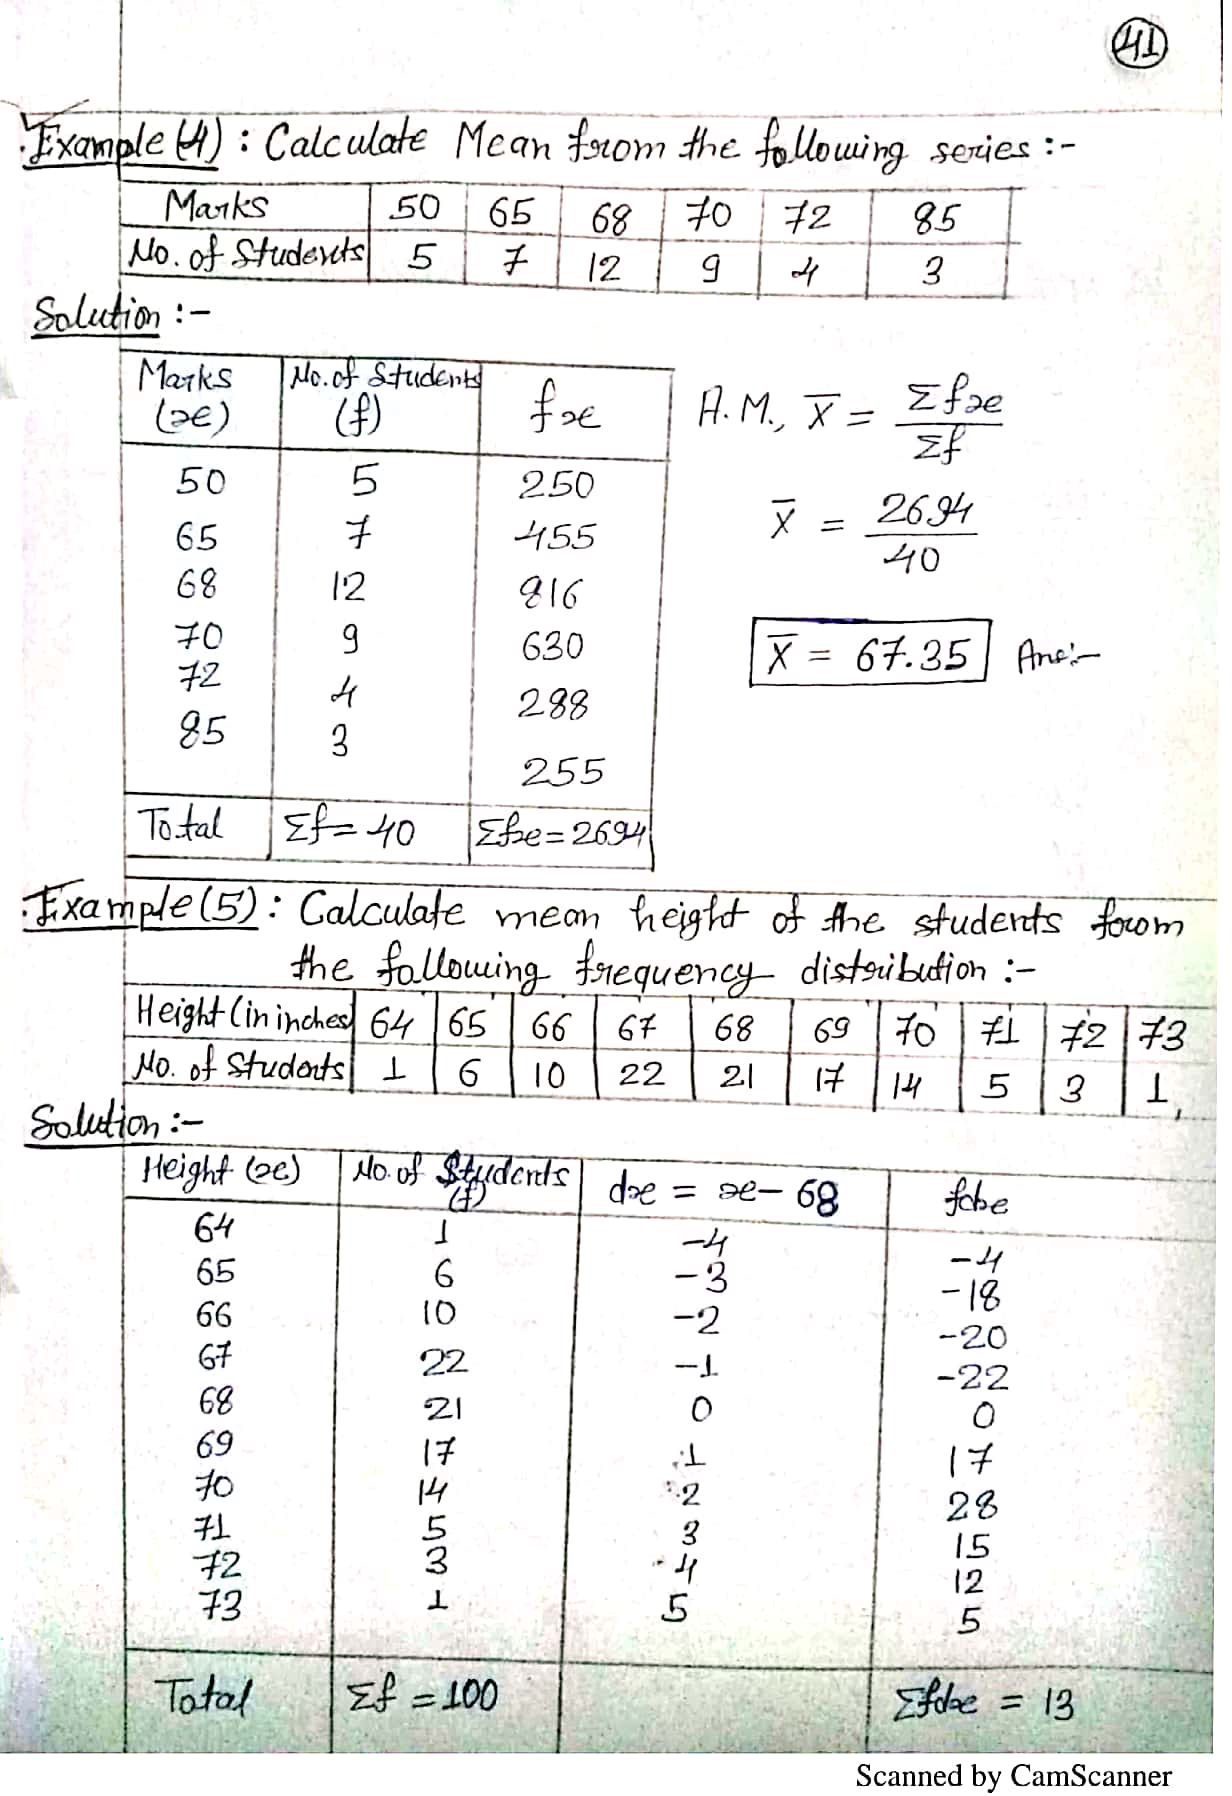 41
Example (4) : Calculate Mean from the following series :-
Marks 50 65 68 70 72 85
No. of Students 5 7 12 9 4 3
Solution :-
Marks (x) No. of Students (f) fx
50 5 250
65 7 455
68 12 816
70 9 630
72 4 288
85 3 255
Total Σf = 40 Σfx = 2694
A.M., X̅ = Σfx / Σf
X̅ = 2694 / 40
X̅ = 67.35 Ans:-
Example (5) : Calculate mean height of the students from
the following frequency distribution :-
Height (in inches) 64 65 66 67 68 69 70 71 72 73
No. of Students 1 6 10 22 21 17 14 5 3 1
Solution :-
Height (x) No. of Students (f) dx = x - 68 fdx
64 1 -4 -4
65 6 -3 -18
66 10 -2 -20
67 22 -1 -22
68 21 0 0
69 17 1 17
70 14 2 28
71 5 3 15
72 3 4 12
73 1 5 5
Total Σf = 100 Σfdx = 13
Scanned by CamScanner